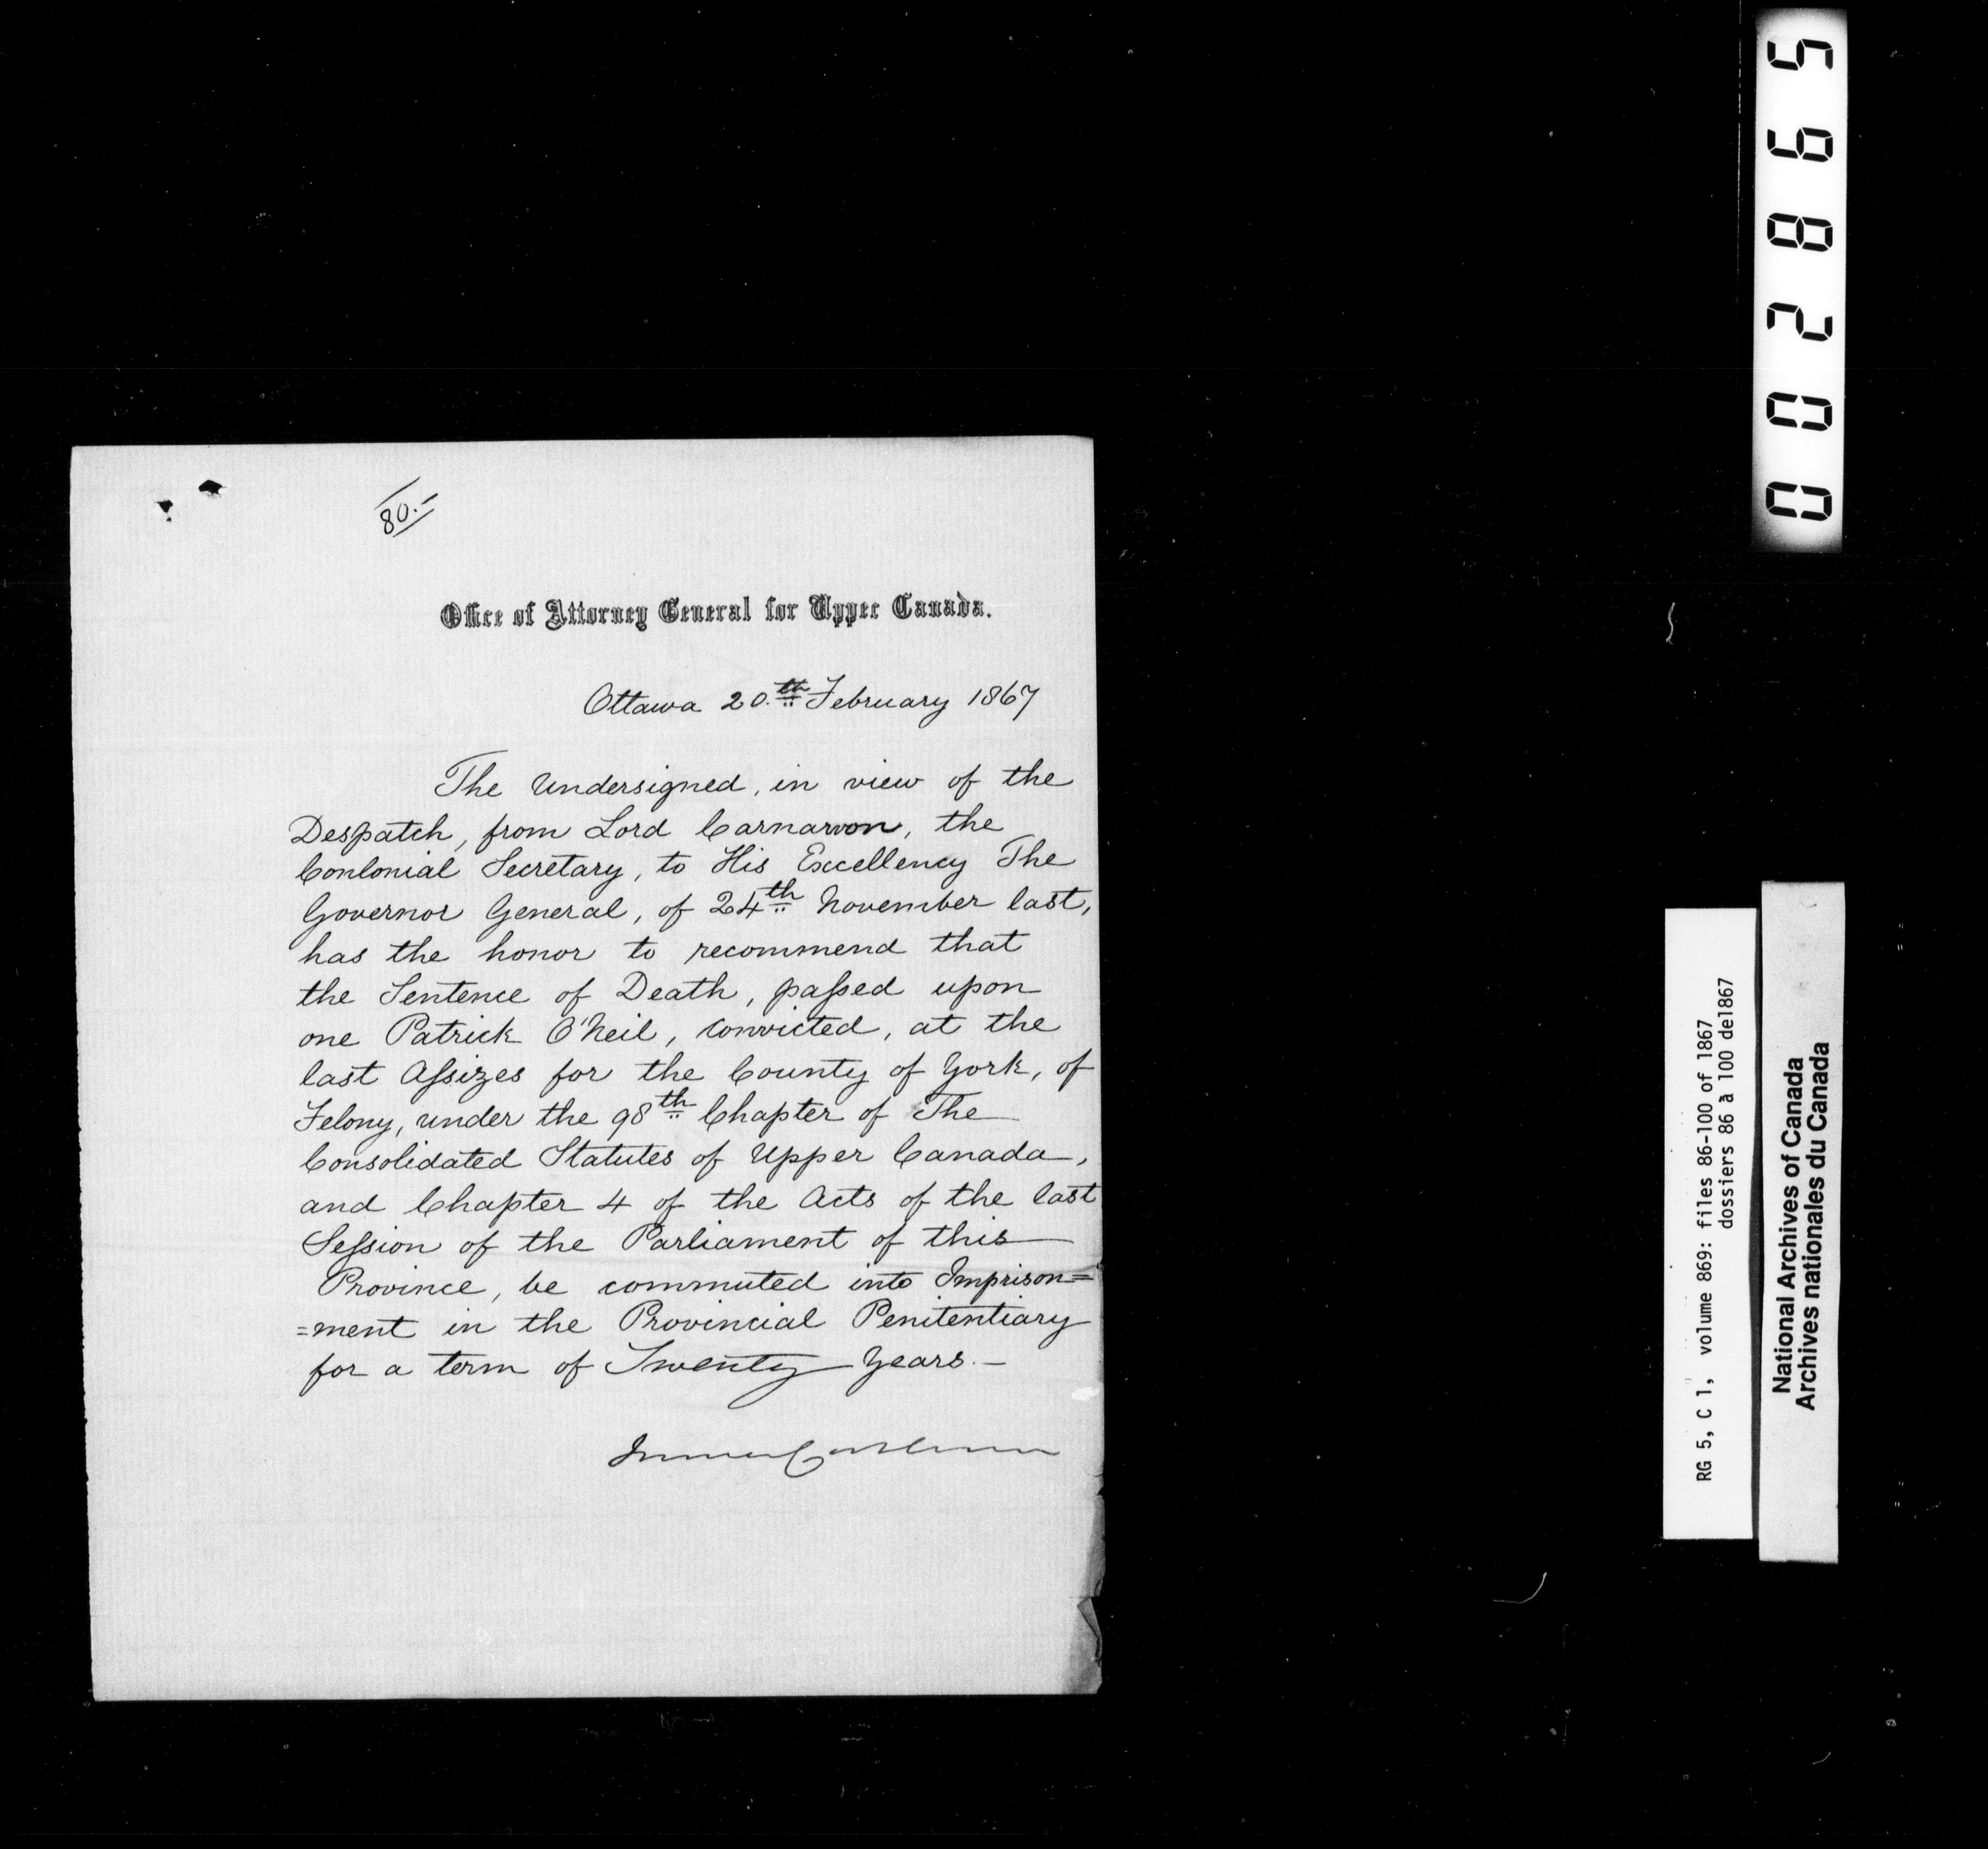 80.-
Office of Attorney General for Upper Canada.
Ottawa 20.th February 1867
The Undersigned, in view of the
Despatch, from Lord Carnarvon, the
Conlonial Secretary, to His Excellency The
Governor General, of 24th November last,
has the honor to recommend that
the Sentence of Death, paſsed upon
one Patrick O'Neil, convicted, at the
last Aſsizes for the County of York, of
Felony, under the 98th Chapter of The
Consolidated Statutes of Upper Canada,
and Chapter 4 of the Acts of the last
Seſsion of the Parliament of this
Province, be commuted into Imprison=
=ment in the Provincial Penitentiary
for a term of Twenty Years.-
002865
RG 5, C 1, volume 869: files 86-100 of 1867
dossiers 86 à 100 de1867
National Archives of Canada
Archives nationales du Canada